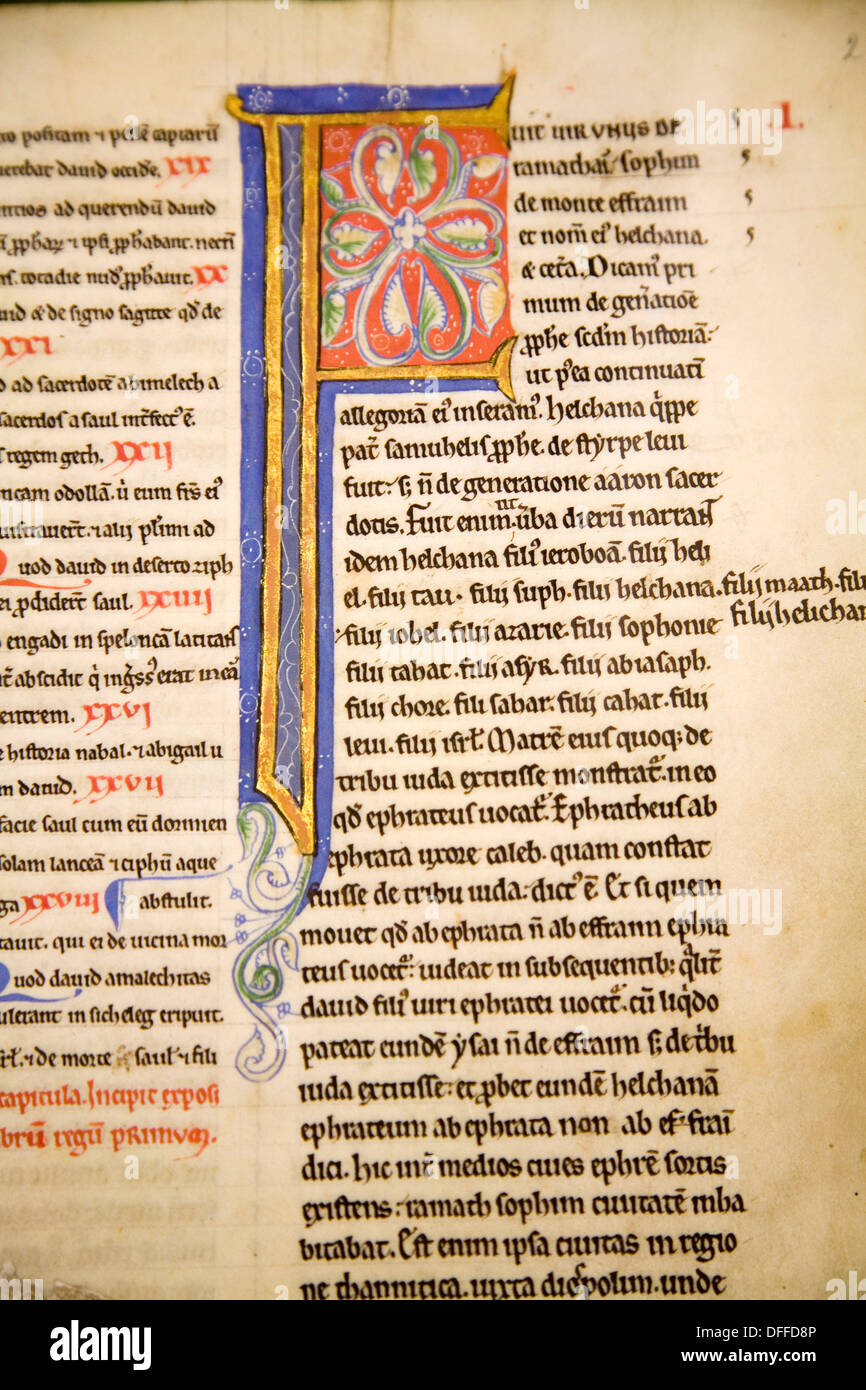 to positam ⁊ pacē captarū
querebat dauid occide. XIX
ntios ad querendū dauid
ꝓphar̄ ⁊ ipsi ꝓphabant. necn̄
tota die nudꝰ ꝓphauit. XX
uid & de signo sagitte qd̄ de
XXI
d ad sacerdotē abimelech a
sacerdos a saul int̄fectꝰ ē.
regem geth. XXII
ncam odollā. u̇ eum fr̄s eiꝰ
⁊ alij plꝛ̄im ad
Quod dauid in deserto ziph
ei ꝓdidert̄ saul. XXIIII
engadi in speloncā latitaꝛ̄s
abscidit q̇ ingꝛ̄ssꝰ erat in eā
entrem. XXVI
historia nabal. ⁊ abigail u
m dauid. XXVII
facie saul cum eū dormien
solam lanceā ⁊ ciphū aque
ga XXVIII abstulit.
tauit. qui ei de uicina mor
Quod dauid amalechitas
ulerant in sicheleg eripuit.
isrł. ⁊ de morte saul ⁊ fili
capitula. Incipit exposi
brū regū PRIMUM.
2
.I.
FUIT UIR UNUS DE
ramathaī sophim
de monte effraim
et nomē eiꝰ helchana.
& cet̄a. Dicamꝰ pri
mum de gen̄atiōe
ꝓphe scdm̄ historiā.
ut p̄ea continuatī
allegoriam eiꝰ inseramꝰ. helchana q̇ppe
pat̄ samuhelis ꝓphe. de styrpe leui
fuit. s; n̄ de generatione aaron sacer
dotis. Fuit enim ut uba dierū narrat
idem helchana filiꝰ ieroboā. filij heli
el. filij tau. filij suph. filij helchana. filij maath. fili
filij iobel. filij azarie. filij sophonie filij helichan
filij tahat. filij asyR. filij abiasaph.
filij chore. fili sabar. filij cahat. filij
leui. filij isrł. Matrē eius quoq; de
tribu iuda extitisse monstrat̄. in eo
qd̄ ephrateus uocat̄. Ephratheus ab
ephrata uxore caleb. quam constat
fuisse de tribu iuda. dictꝰ ē. Et si quem
mouet qd̄ ab ephrata n̄ ab effraim ephra
teus uocet̄. uideat in subsequentib; qłit̄
dauid filiꝰ uiri ephratei uocet̄. cū liq̇do
pateat eundē ysai n̄ de effraim s; de tꝛ̇bu
iuda extitisse. et ꝓbet eundē helchanā
ephrateum ab ephrata non ab effraī
dici. hic int̄ medios ciues ephrē sortis
existens. ramath sophim ciuitatē inha
bitabat. Est enim ipsa ciuitas in regio
ne thannitica. iuxta diospolim. unde